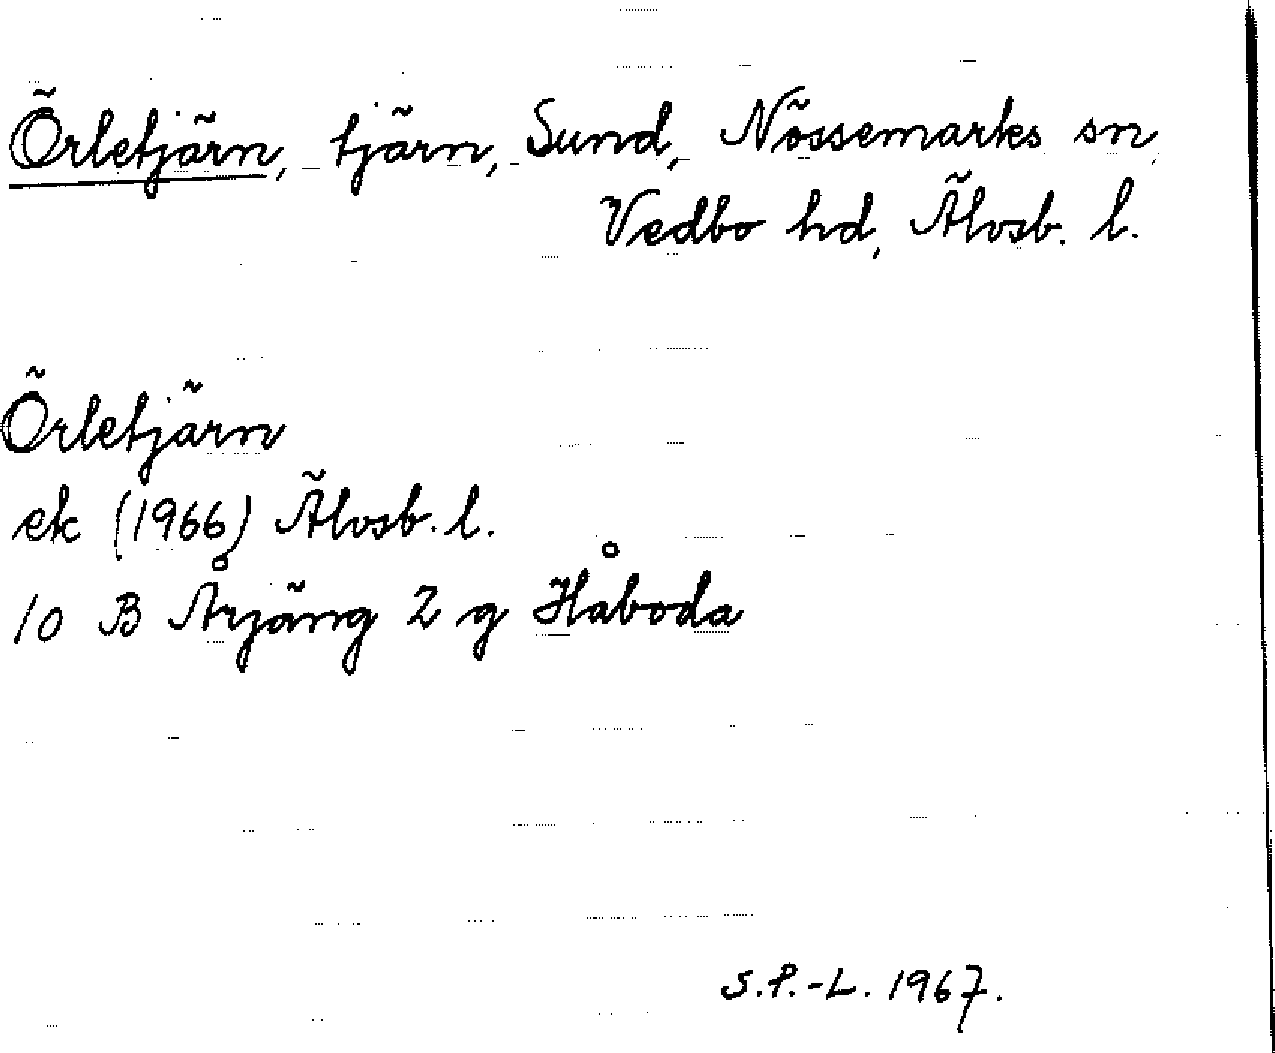 Örletjärn, tjärn, Sund, Nössemarks sn,
Vedbo hd, Älvsb. l.
Örletjärn
ek (1966) Älvsb. l.
10 B Årjäng 2 g Håboda
S.P.-L. 1967.